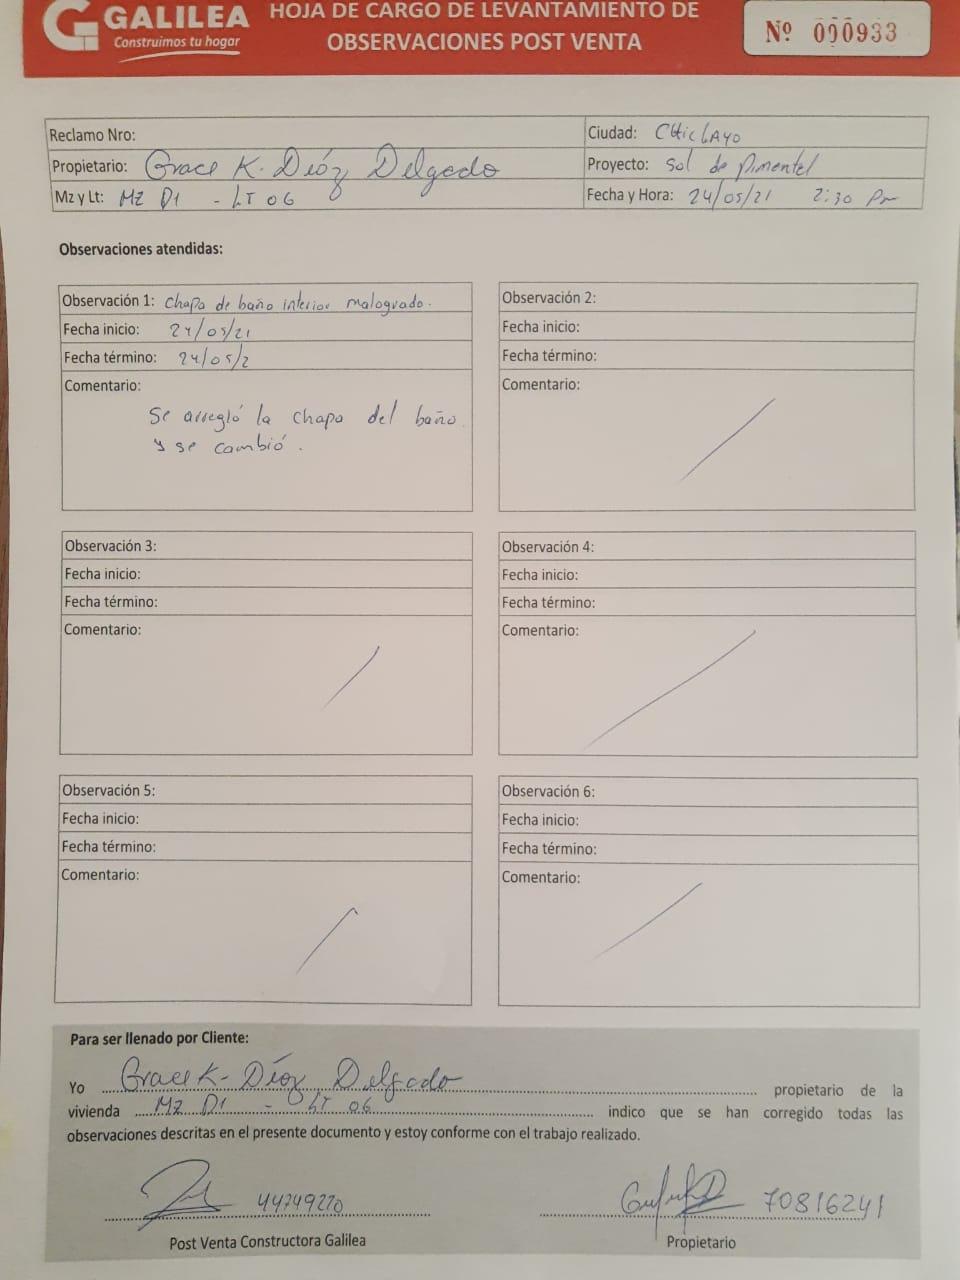 GALILEA
Construimos tu hogar
HOJA DE CARGO DE LEVANTAMIENTO DE
OBSERVACIONES POST VENTA
Nº 000933
Reclamo Nro:
Ciudad: CHICLAYO
Propietario: Grace K. Díaz Delgado
Proyecto: Sol de Pimentel
Mz y Lt: MZ D1 - LT 06
Fecha y Hora: 24/05/21 2:30 Pm
Observaciones atendidas:
Observación 1: Chapa de baño interior malogrado.
Fecha inicio: 24/05/21
Fecha término: 24/05/2
Comentario:
Se arregló la chapa del baño.
y se cambió.
Observación 2:
Fecha inicio:
Fecha término:
Comentario:
Observación 3:
Fecha inicio:
Fecha término:
Comentario:
Observación 4:
Fecha inicio:
Fecha término:
Comentario:
Observación 5:
Fecha inicio:
Fecha término:
Comentario:
Observación 6:
Fecha inicio:
Fecha término:
Comentario:
Para ser llenado por Cliente:
Yo Grace K. Díaz Delgado propietario de la
vivienda MZ D1 - LT 06 indico que se han corregido todas las
observaciones descritas en el presente documento y estoy conforme con el trabajo realizado.
44749270
70816241
Post Venta Constructora Galilea
Propietario